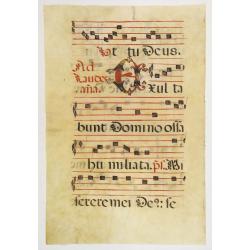 Pt tu Deus.
Ad
Laudes
aña.
Exul ta
bunt Domino ossa
hu miliata. ps. Mi
serere mei De9: se